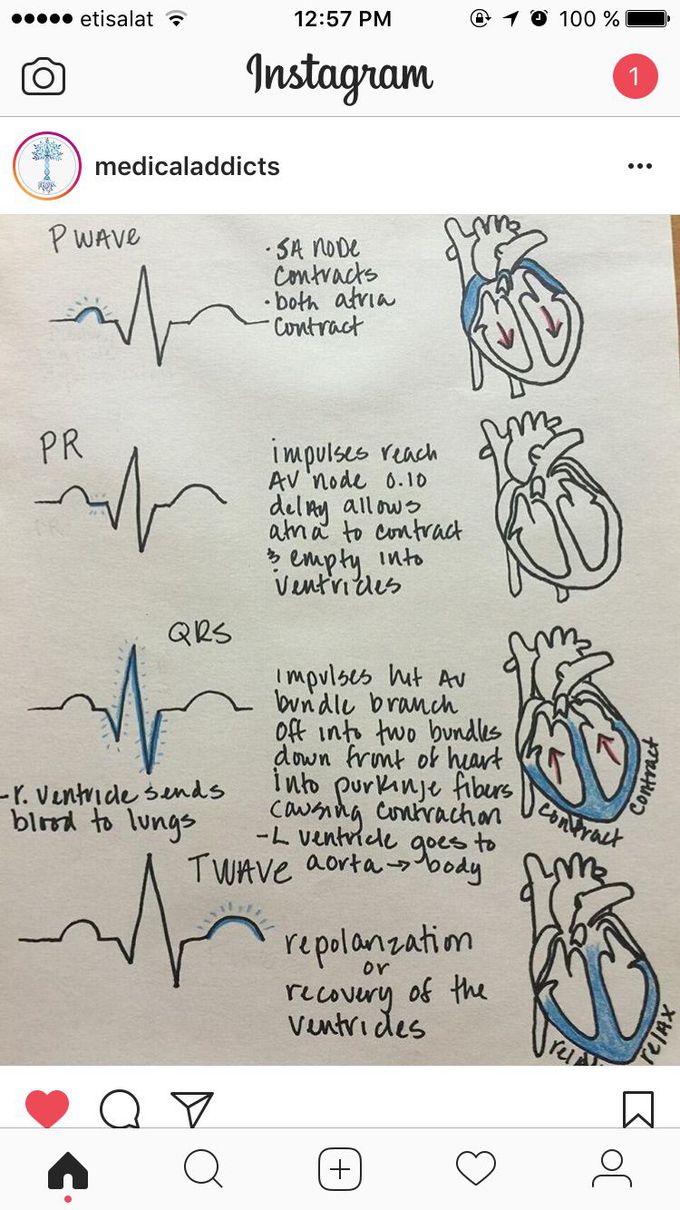 etisalat 12:57 PM 100 %
Instagram
1
medicaladdicts
P WAVE
· SA NODE
contracts
· both atria
contract
PR
impulses reach
AV node 0.10
delay allows
atria to contract
& empty into
ventricles
QRS
impulses hit AV
bundle branch
off into two bundles
down front of heart
into purkinje fibers
causing contraction
- L ventricle goes to
aorta → body
- r. ventricle sends
blood to lungs
contract
contract
T WAVE
repolarization
or
recovery of the
ventricles
relax
relax